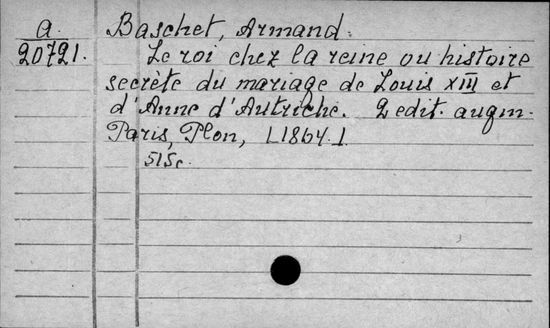 a. Baschet, Armand.
20721. Le roi chez la reine ou histoire
secrète du mariage de Louis XIII et
d'Anne d'Autriche. 2 edit. augm.
Paris, Plon, [1864].
515c.